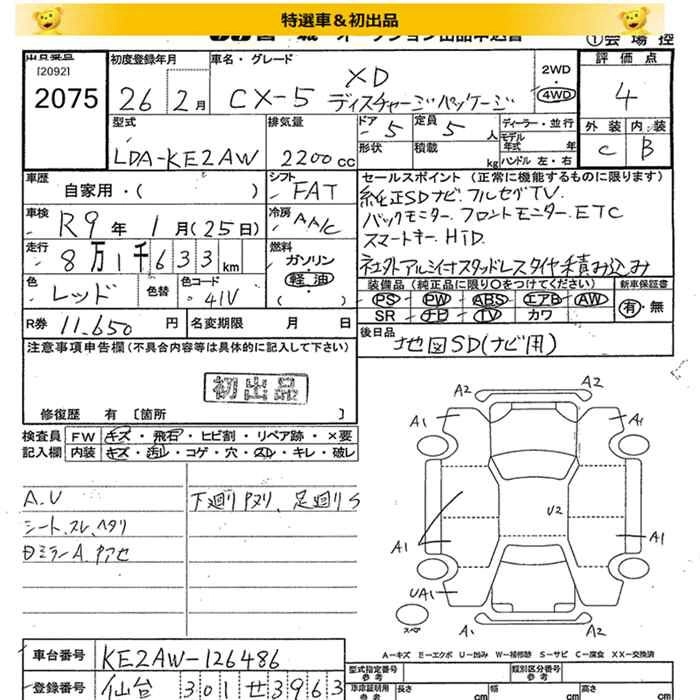 特選車＆初出品
オークション出品申込書
①会場控
出品番号
[2092]
2075
初度登録年月
26 2月
車名・グレード
XD
CX-5 ディスチャージパッケージ
2WD
4WD
評価点
4
外装 内装
C B
型式
LDA-KE2AW
排気量
2200cc
ドア 5
定員 5人
形状
積載 kg
ディーラー・並行
モデル年式 年
ハンドル 左・右
車歴
自家用・( )
シフト
FAT
車検
R9年1月(25日)
冷房
AAC
走行
8万1千633km
燃料
ガソリン・軽油・( )
色
レッド
色替
色コード
41V
R券 11,650円
名変期限 月 日
セールスポイント（正常に機能するものに限ります）
純正SDナビ.フルセグTV.
バックモニター.フロントモニター.ETC
スマートキー.HiD.
社外アルミ付スタッドレスタイヤ積み込み
装備品（純正品に限り○をつけてください）
新車保証書
PS PW ABS エアB AW
SR ナビ TV カワ
有・無
後日品
地図SD(ナビ用)
注意事項申告欄（不具合内容等は具体的に記入して下さい）
初出品
修復歴 有 [箇所 ]
検査員記入欄
FW キズ・飛石・ヒビ割・リペア跡・×要
内装 キズ・汚レ・コゲ・穴・スレ・キレ・破レ
A.U
シート.スレ.ヘタリ
下廻りPヌリ、足廻りS
A2 A2
A1 A1
U2
A1 A1
UA1
スペア
A1 A2
A－キズ E－エクボ U－凹み W－補修跡 S－サビ C－腐食 XX－交換済
車台番号 KE2AW-126486
登録番号 仙台 301 せ 3963
型式指定番号
類別区分番号
車庫証明用参考
長さ cm
幅 cm
高さ cm